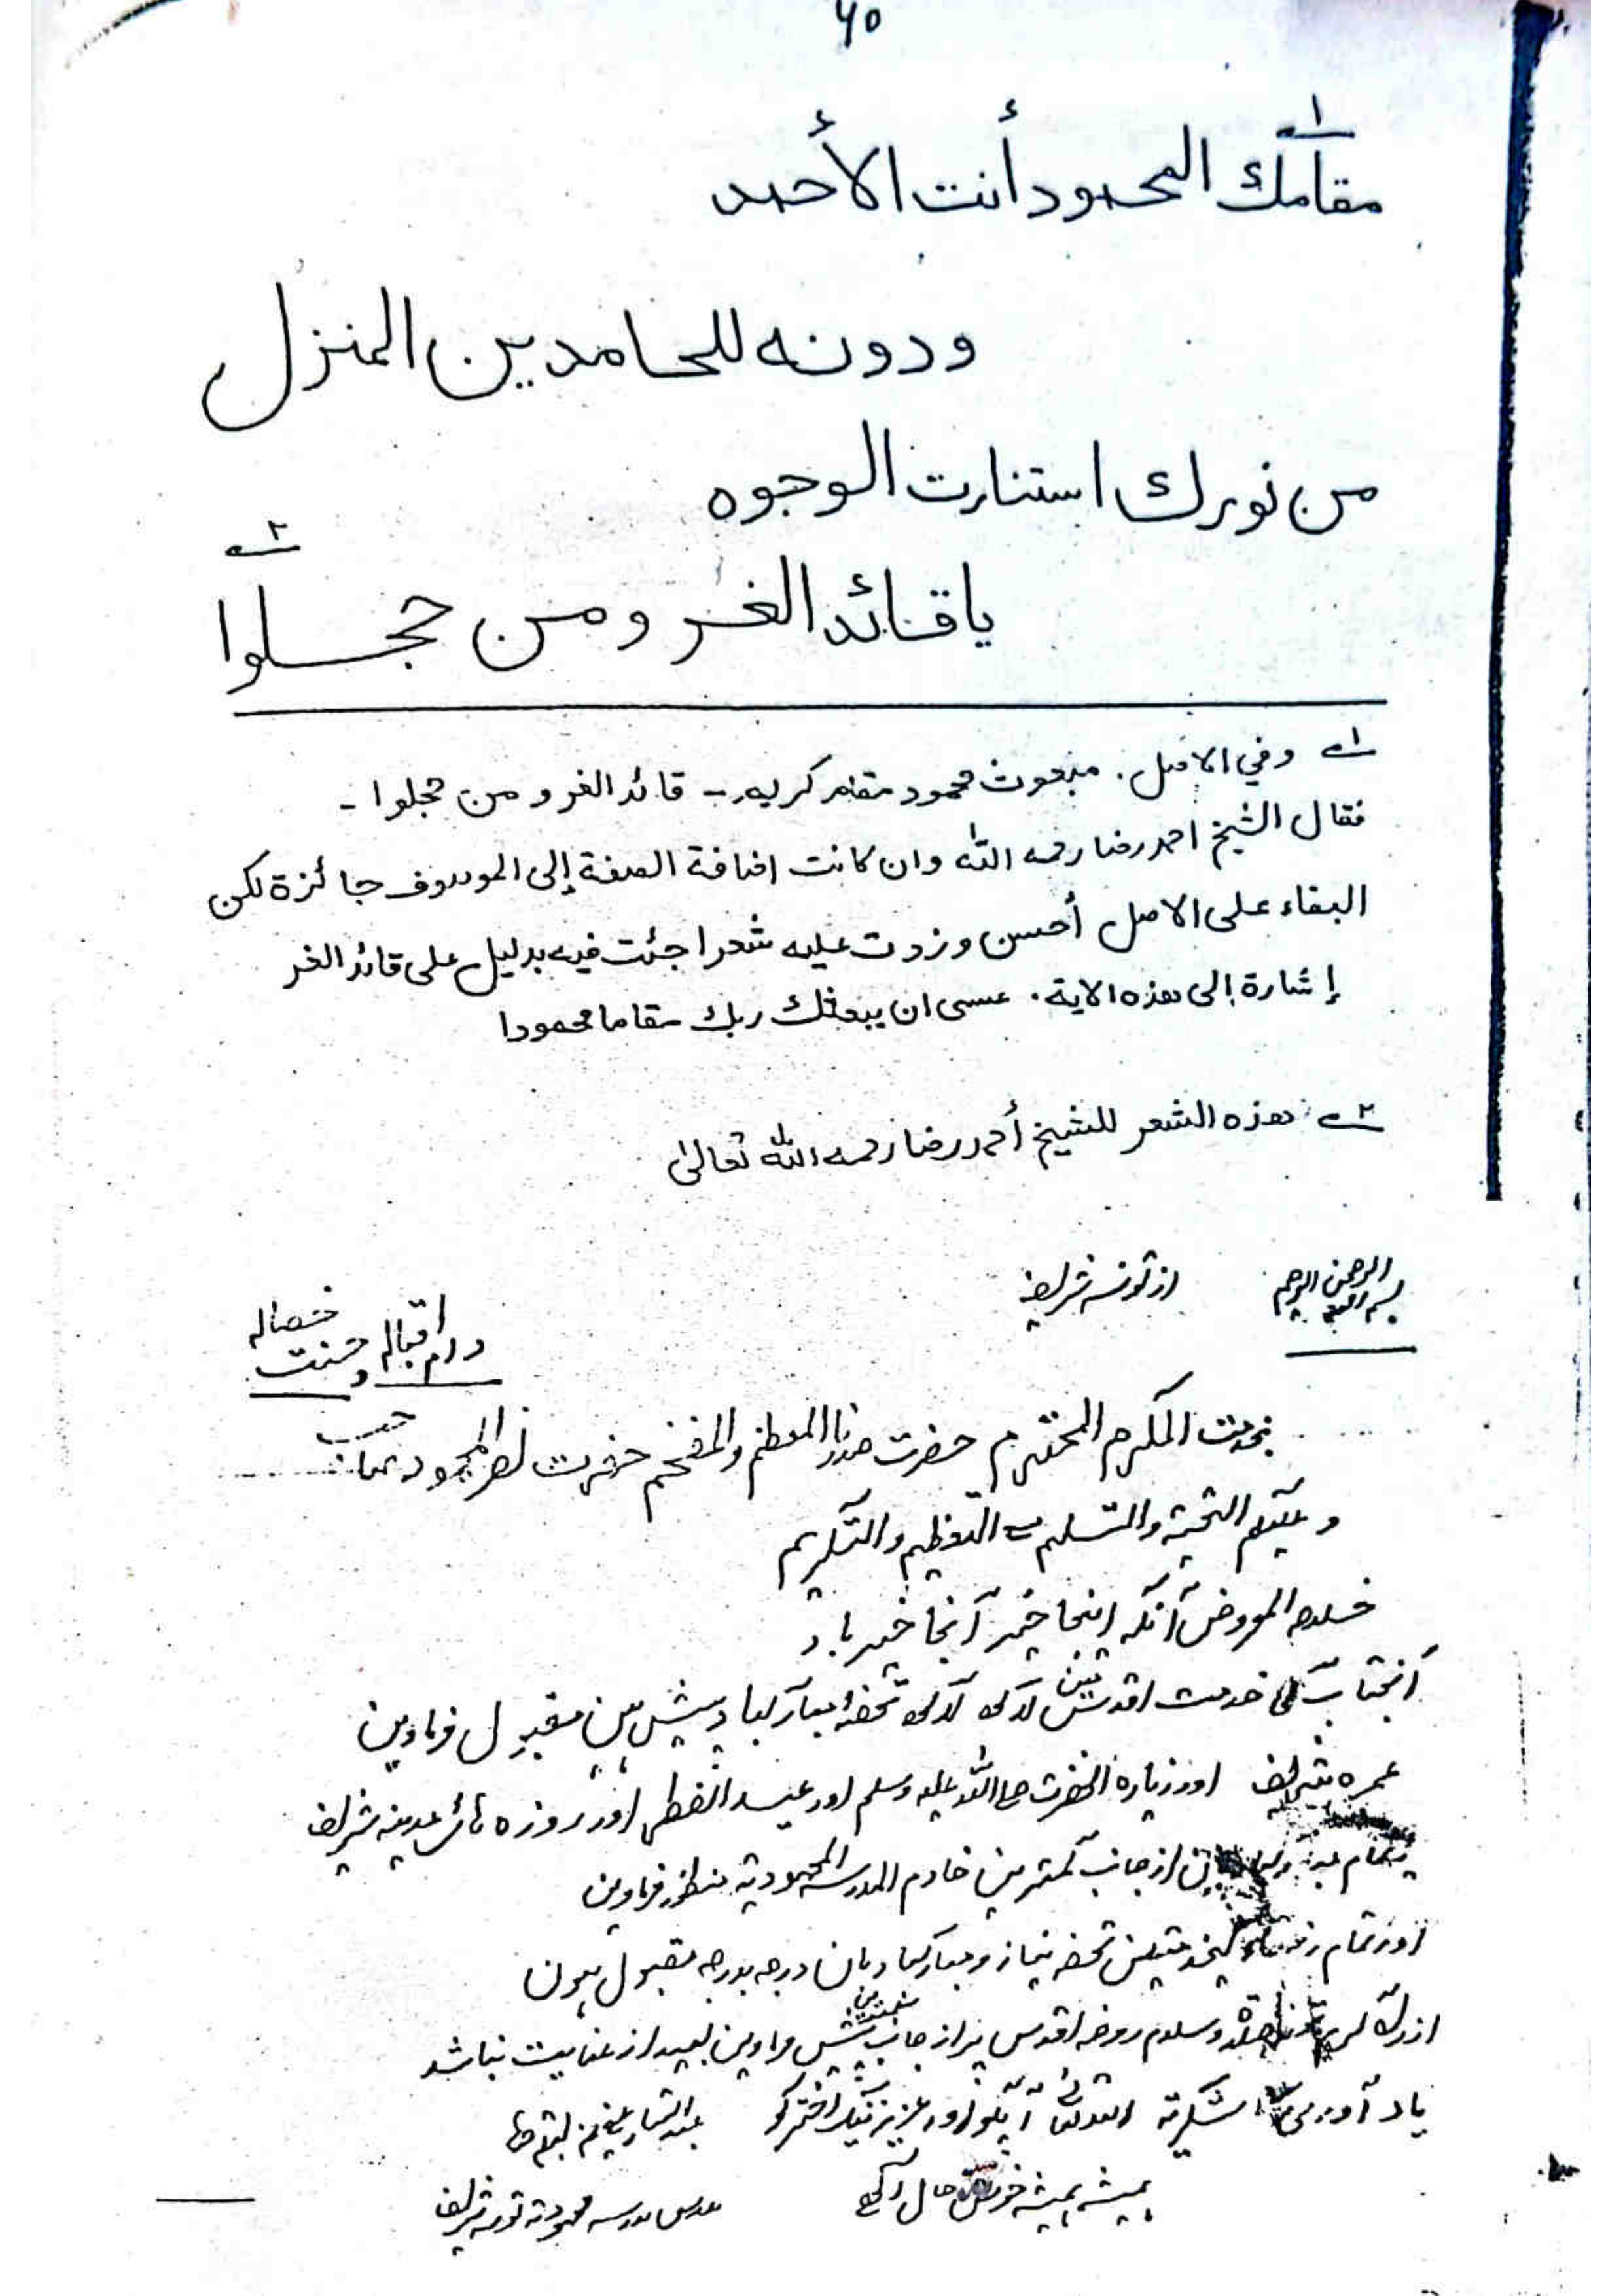 ٦٥
١
مقامك المحمود أنت الأحمد
ودونه للحامدين المنزل
من نورك استنارت الوجوه
٢
يا قائد الغر ومن حجلوا
١ وفي الاصل. مبعوث محمود مقام كريم - قائد الغر و من حجلوا -
فقال الشيخ احمد رضا رحمه الله وان كانت اضافة الصفة إلى الموصوف جائزة لكن
البقاء على الاصل أحسن وزدت عليه شعرا جئت فيه بدليل على قائد الغر
إشارة إلى هذه الاية. عسى ان يبعثك ربك مقاما محمودا
٢ هذه الشعر للشيخ أحمد رضا رحمه الله تعالى
بسم الله الرحمن الرحيم
از تونسہ شریف
دام اقبالہ و حسنت خصالہ
بخدمت المکرم المحترم حضرت المعظم والمفخم حضرت نصر المحمود صاحب
و علیکم التحیۃ والتسلیم مع التعظیم والتکریم
خلاصہ المعروض آنکہ اینجا خیر آنجا خیر باد
آنجناب کی خدمت اقدس میں لاکھ لاکھ تحفہ مبارکباد پیش ہیں مقبول فرماویں
عمرہ شریف اور زیارۃ آنحضرت صلی اللہ علیہ وسلم اور عید الفطر اور روزہ ہائے مدینہ شریف
از جانب کمترین خادم المدرسہ المحمودیہ منظور فرماویں
اور تمام کیخدمتیں تحفہ نیاز و مبارکبادیاں درجہ بدرجہ مقبول ہوں
وسلام روضہ اقدس پر از جانب پیش فرماویں بعید از عنایت نباشد
یاد آوری شکریہ اللہ تعالیٰ آپکو اور عزیز نیک اختر کو
ہمیشہ ہمیشہ خوش حال رکھے
مدرس مدرسہ محمودیہ تونسہ شریف